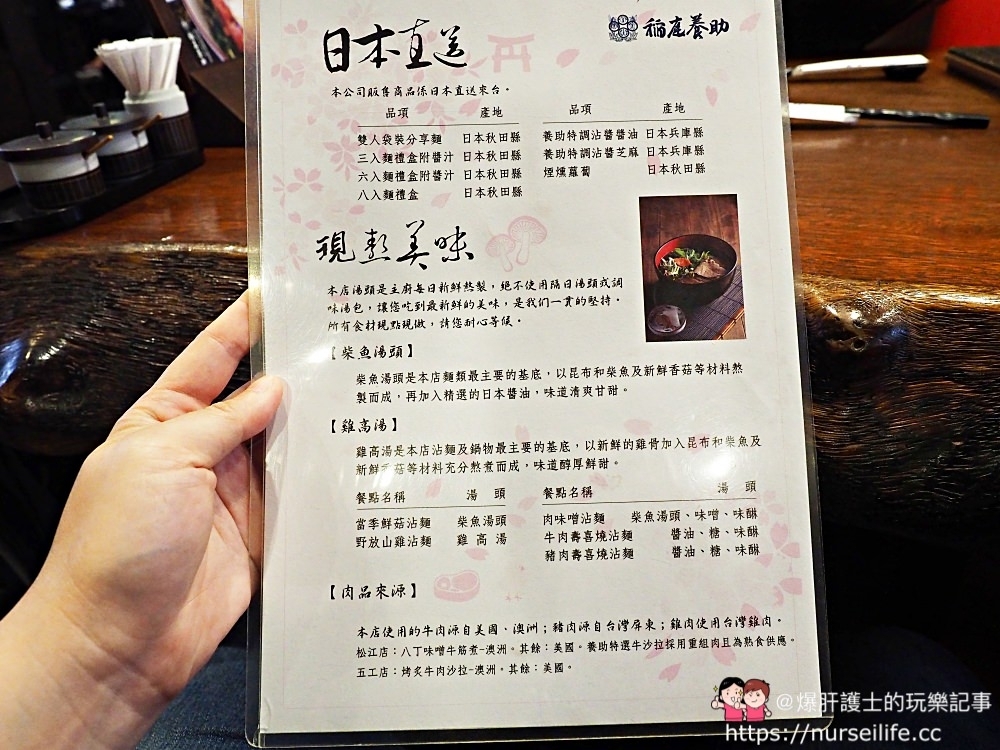 日本直送
稻庭養助
本公司販售商品係日本直送來台。
品項 產地
雙人袋裝分享麵 日本秋田縣
三入麵禮盒附醬汁 日本秋田縣
六入麵禮盒附醬汁 日本秋田縣
八入麵禮盒 日本秋田縣
品項 產地
養助特調沾醬醬油 日本兵庫縣
養助特調沾醬芝麻 日本兵庫縣
煙燻蘿蔔 日本秋田縣
現熬美味
本店湯頭是主廚每日新鮮熬製，絕不使用隔日湯頭或調
味湯包，讓您吃到最新鮮的美味，是我們一貫的堅持。
所有食材現點現做，請您耐心等候。
【柴魚湯頭】
柴魚湯頭是本店麵類最主要的基底，以昆布和柴魚及新鮮香菇等材料熬
製而成，再加入精選的日本醬油，味道清爽甘甜。
【雞高湯】
雞高湯是本店沾麵及鍋物最主要的基底，以新鮮的雞骨加入昆布和柴魚及
新鮮香菇等材料充分熬煮而成，味道醇厚鮮甜。
餐點名稱 湯頭
當季鮮菇沾麵 柴魚湯頭
野放山雞沾麵 雞高湯
餐點名稱 湯頭
肉味噌沾麵 柴魚湯頭、味噌、味醂
牛肉壽喜燒沾麵 醬油、糖、味醂
豬肉壽喜燒沾麵 醬油、糖、味醂
【肉品來源】
本店使用的牛肉源自美國、澳洲；豬肉源自台灣屏東；雞肉使用台灣雞肉。
松江店：八丁味噌牛筋煮-澳洲。其餘：美國。養助特選牛沙拉採用重組肉且為熟食供應。
五工店：烤炙牛肉沙拉-澳洲。其餘：美國。
@爆肝護士的玩樂記事
https://nurseilife.cc